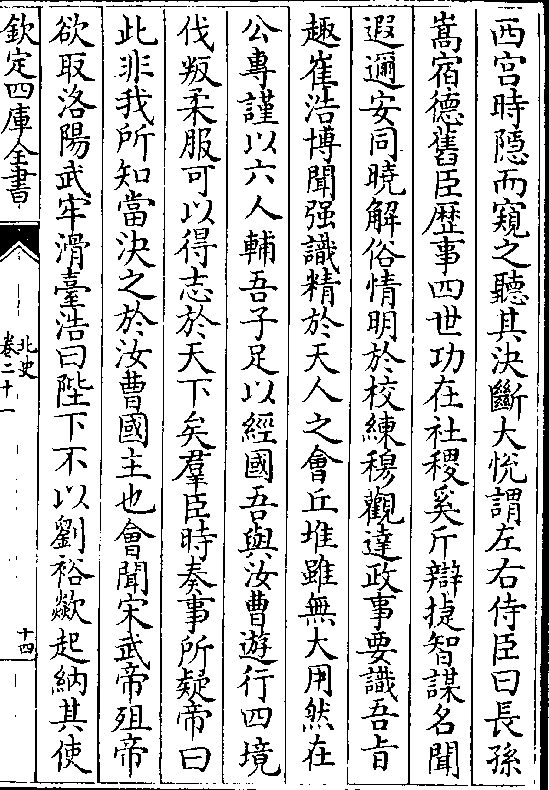 西宫時隱而窺之聽其決斷大悅謂左右侍臣曰長孫
嵩宿德舊臣歴事四世功在社稷奚斤辯捷智謀名聞
遐邇安同曉解俗情明於校練穆觀達政事要識吾㫖
趣崔浩博聞强識精於天人之會丘堆雖無大用然在
公專謹以六人輔吾子足以經國吾與汝曹遊行四境
伐叛柔服可以得志於天下矣羣臣時奏事所疑帝曰
此非我所知當決之於汝曹國主也會聞宋武帝殂帝
欲取洛陽武牢滑臺浩曰陛下不以劉裕歘起納其使
欽定四庫全書
北史
卷二十一
十四